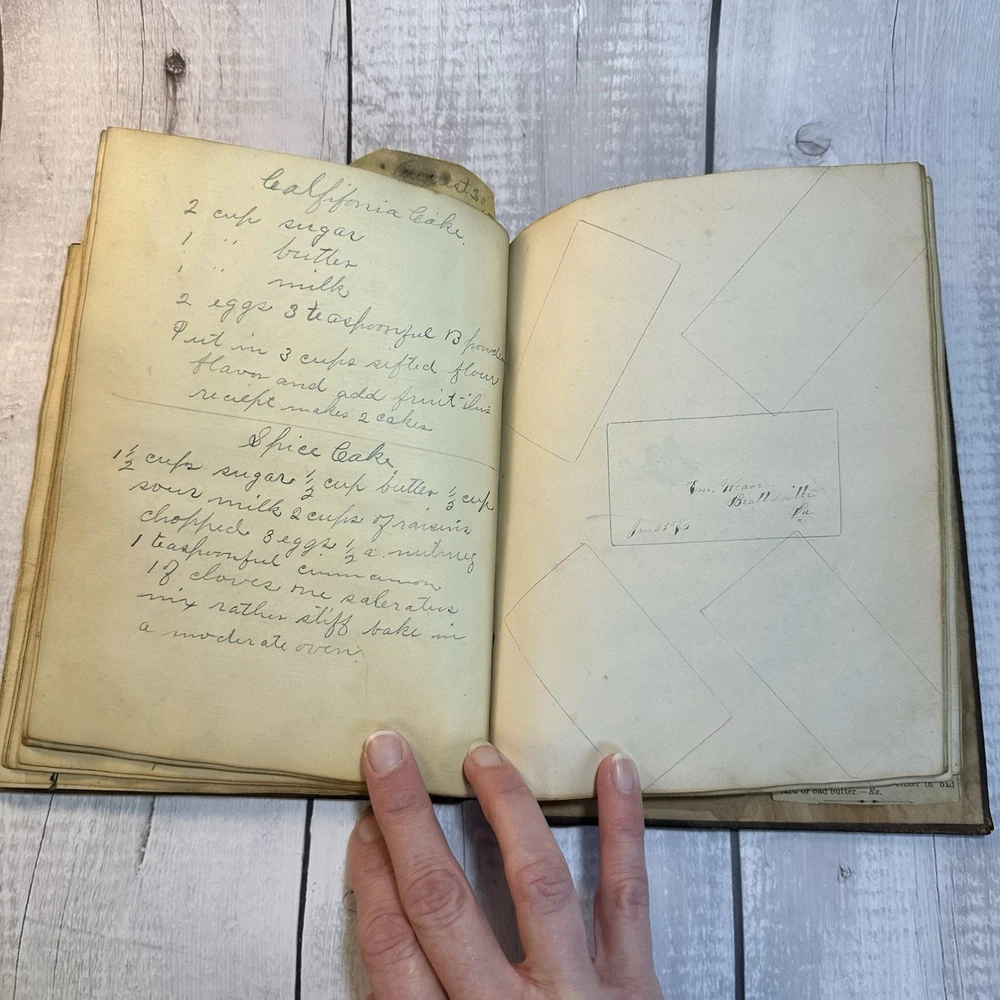 Calififonia Cake.
2 cup sugar
1 " butter
1 " milk
2 eggs 3 teaspoonful B powder
Put in 3 cups sifted flour
flavor and add fruit this
reciept makes 2 cakes
Spice Cake
1½ cups sugar ½ cup butter ½ cup
sour milk 2 cups of raisins
chopped 3 eggs ½ a nutmeg
1 teaspoonful cinnamon
1 of cloves one saleratus
mix rather stiff bake in
a moderate oven.
Em. Weaver
Beallsville
Pa
Jan
either in bad
lard or bad butter.—Ex.